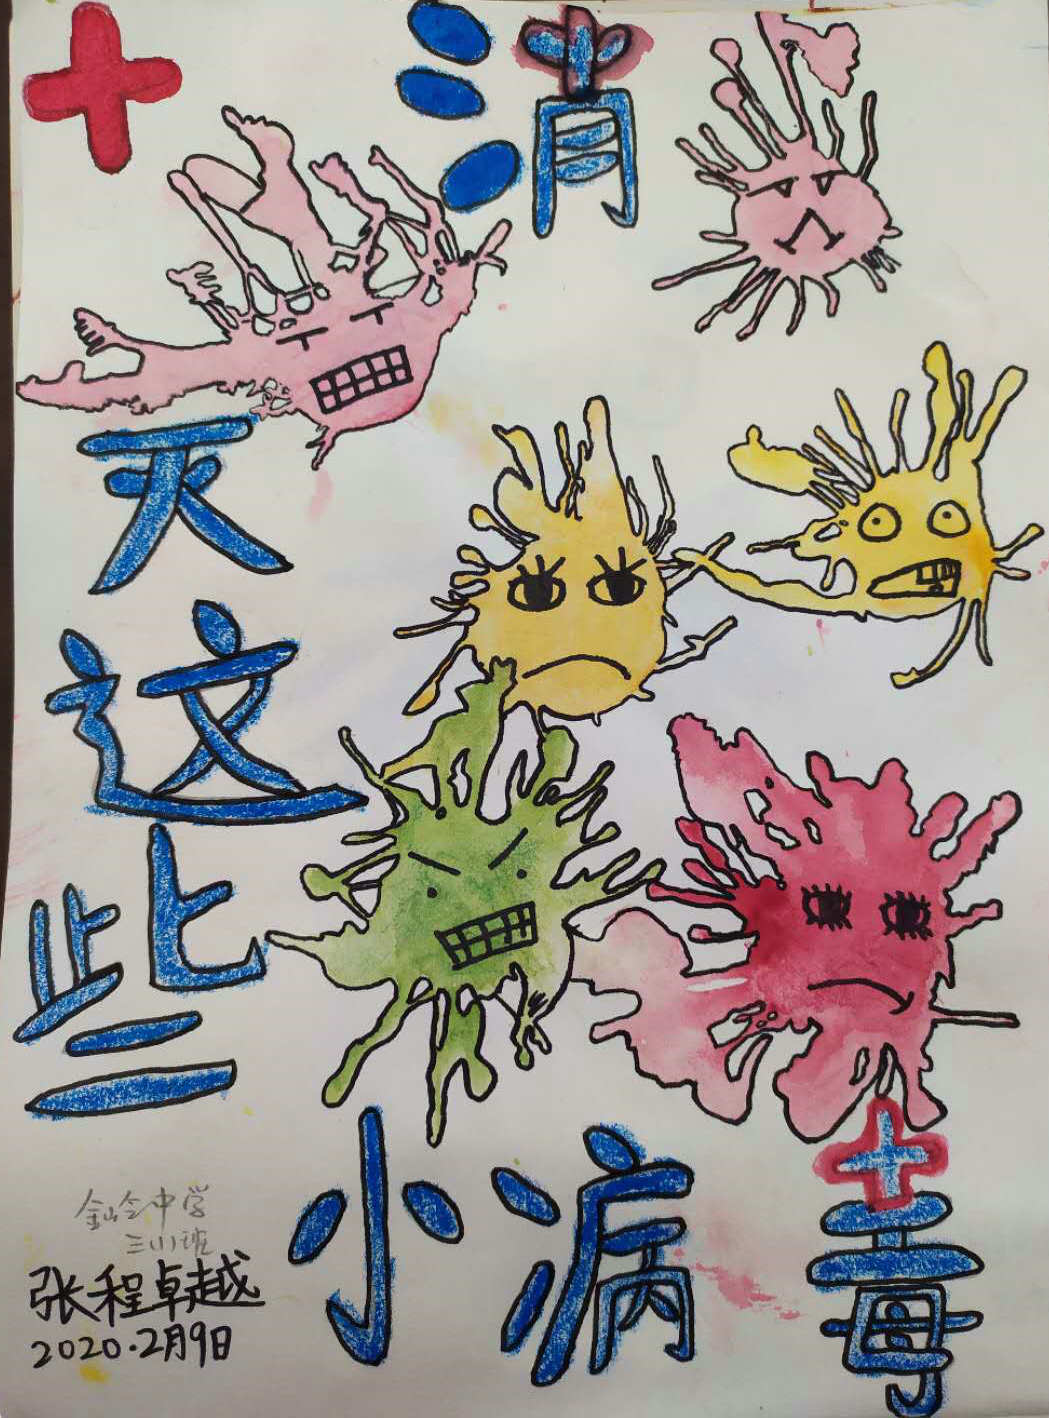 消
灭
这
些
小病毒
三(1)班
张程卓越
2020.2月9日